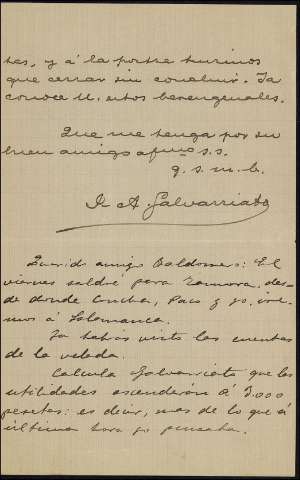 tas, y á la postre tuvimos
que cerrar sin concluir. Ya
conoce U. estos berengenales.
Que me tenga por su
buen amigo afmo s.s.
q. s. m. b.
J. A. Galvarriato
Querido amigo Baldomero: El
viernes saldré para Zamora, des-
de donde Concha, Paco y yo, ire-
mos á Salamanca.
Ya habrás visto las cuentas
de la velada.
Calcula Galvarriato que las
utilidades ascenderán á 3.000
pesetas: es decir, mas de lo que á
última hora yo pensaba.